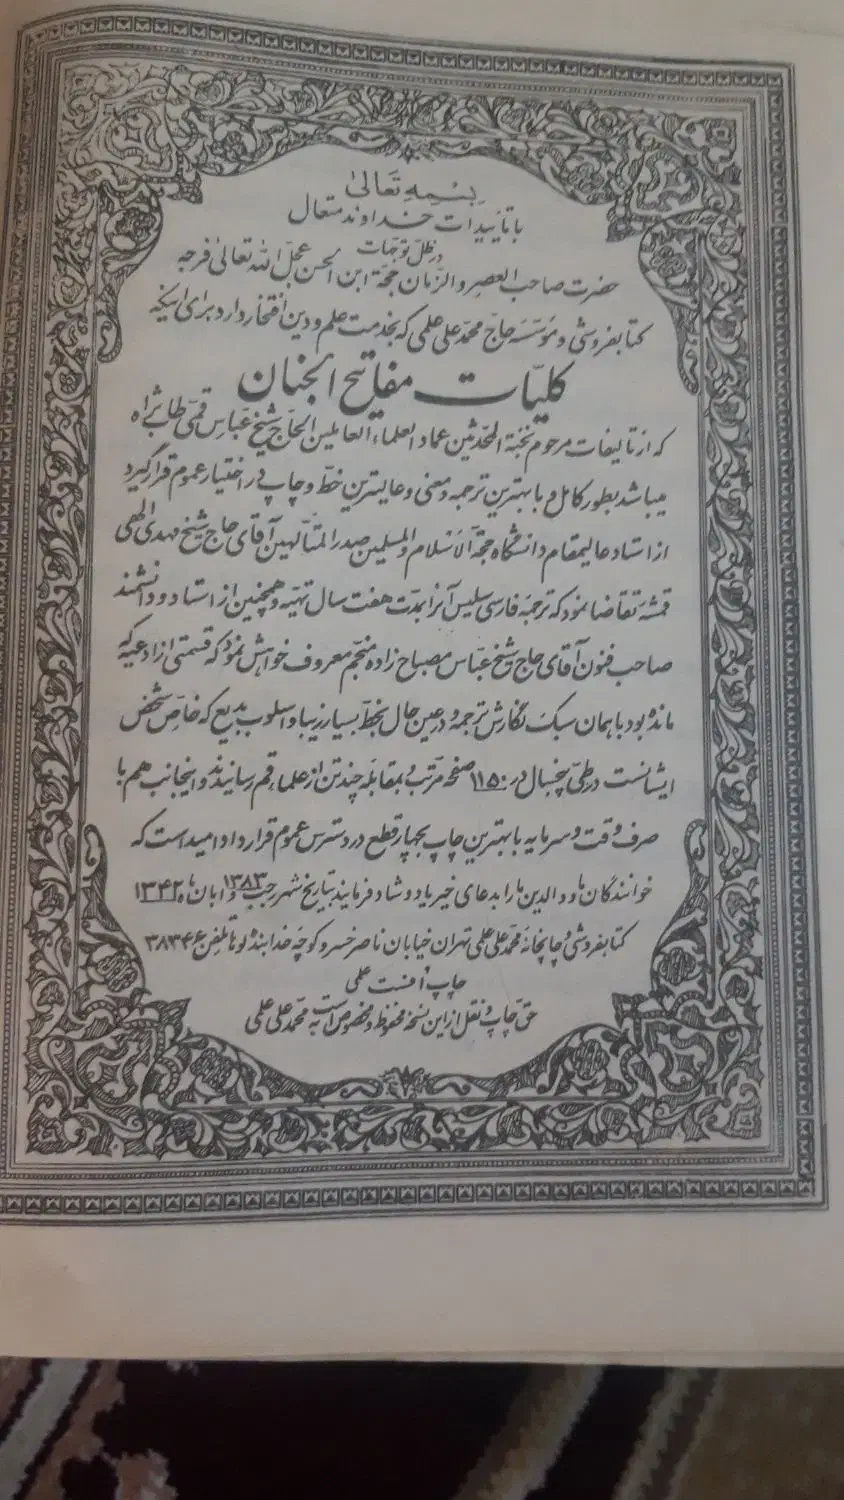 بسمه تعالی
با تأییدات خداوند متعال
در ظلّ توجّهات
حضرت صاحب العصر و الزّمان حجّة ابن الحسن عجّل الله تعالی فرجه
کتابفروشی و مؤسّسه حاجّ محمّد علی علمی که بخدمت علم و دین افتخار دارد برای اینکه
کلیّات مفاتیح الجنان
که از تألیفات مرحوم نخبة المحدّثین عماد العلماء العاملین الحاجّ شیخ عبّاس قمی طاب ثراه
میباشد بطور کامل و با بهترین ترجمه و معنی و عالیترین خطّ و چاپ در اختیار عموم قرار گیرد
از استاد عالیمقام دانشگاه حجّة الاسلام و المسلمین صدر المتألّهین آقای حاج شیخ مهدی الهی
قمشه تقاضا نمود که ترجمه فارسی سلیس آنرا بمدّت هفت سال تهیّه و همچنین از استاد و دانشمند
صاحب فنون آقای حاج شیخ عبّاس مصباح زاده منجّم معروف خواهش نمود که قسمتی از ادعیه که
مانده بود با همان سبک نگارش ترجمه و در عین حال بخطّ بسیار زیبا و اسلوب بدیع که خاصّ شخص
ایشانست در طیّ پنجسال در ۱۱۵۰ صفحه مرتّب و بمقابله چند تن از علماء قم رسانیدند و اینجانب هم با
صرف وقت و سرمایه با بهترین چاپ بچهار قطع در دسترس عموم قرار داد و امید است که
خوانندگان ما و والدین ما را بدعای خیر یاد و شاد فرمایند بتاریخ شهر رجب ۱۳۸۳ و ابان ماه ۱۳۴۲
کتابفروشی و چاپخانه محمّد علی علمی تهران خیابان ناصر خسرو کوچه خدابنده لوها تلفن ۳۸۳۴۶
چاپ افست علمی
حق چاپ و نقل از این نسخه محفوظ و مخصوص است به محمّد علی علمی